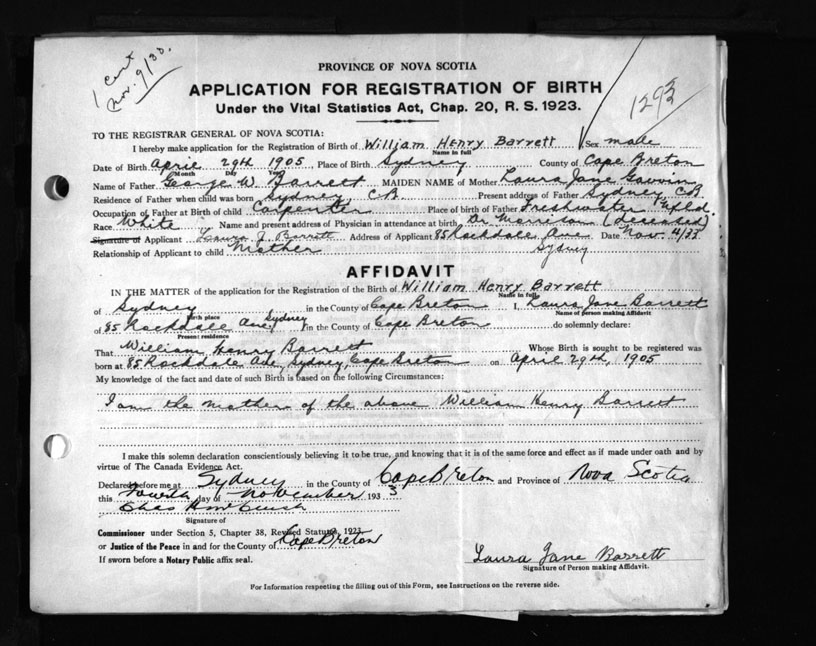 1 cert
Nov. 9/33.
1293
PROVINCE OF NOVA SCOTIA
APPLICATION FOR REGISTRATION OF BIRTH
Under the Vital Statistics Act, Chap. 20, R. S. 1923.
TO THE REGISTRAR GENERAL OF NOVA SCOTIA:
I hereby make application for the Registration of Birth of William Henry Barrett Sex male
Name in full
Date of Birth April 29th 1905 Place of Birth Sydney County of Cape Breton
Month Day Year
Name of Father George W. Barrett MAIDEN NAME of Mother Laura Jane
Residence of Father when child was born Sydney, C.B. Present address of Father Sydney, C.B.
Occupation of Father at Birth of child Carpenter Place of Birth of Father Freshwater Nfld.
Race White Name and present address of Physician in attendance at birth Dr. Morrison (deceased)
Signature of Applicant Laura J. Barrett Address of Applicant 85 Rockdale Ave. Date Nov. 4/33
Sydney
Relationship of Applicant to child Mother
AFFIDAVIT
IN THE MATTER of the application for the Registration of the Birth of William Henry Barrett
Name in full
of Sydney in the County of Cape Breton I, Laura Jane Barrett
Birth place Name of person making Affidavit
of 85 Rockdale Ave Sydney in the County of Cape Breton do solemnly declare:
Present residence
That William Henry Barrett Whose Birth is sought to be registered was
born at 85 Rockdale Ave, Sydney, Cape Breton on April 29th, 1905
My knowledge of the fact and date of such Birth is based on the following Circumstances:
I am the mother of the above William Henry Barrett
I make this solemn declaration conscientiously believing it to be true, and knowing that it is of the same force and effect as if made under oath and by
virtue of The Canada Evidence Act.
Declared before me at Sydney in the County of Cape Breton and Province of Nova Scotia
this Fourth day of November 1933
Chas
Signature of
Commissioner under Section 5, Chapter 38, Revised Statutes, 1923
or Justice of the Peace in and for the County of Cape Breton
If sworn before a Notary Public affix seal.
Laura Jane Barrett
Signature of Person making Affidavit.
For Information respecting the filling out of this Form, see Instructions on the reverse side.